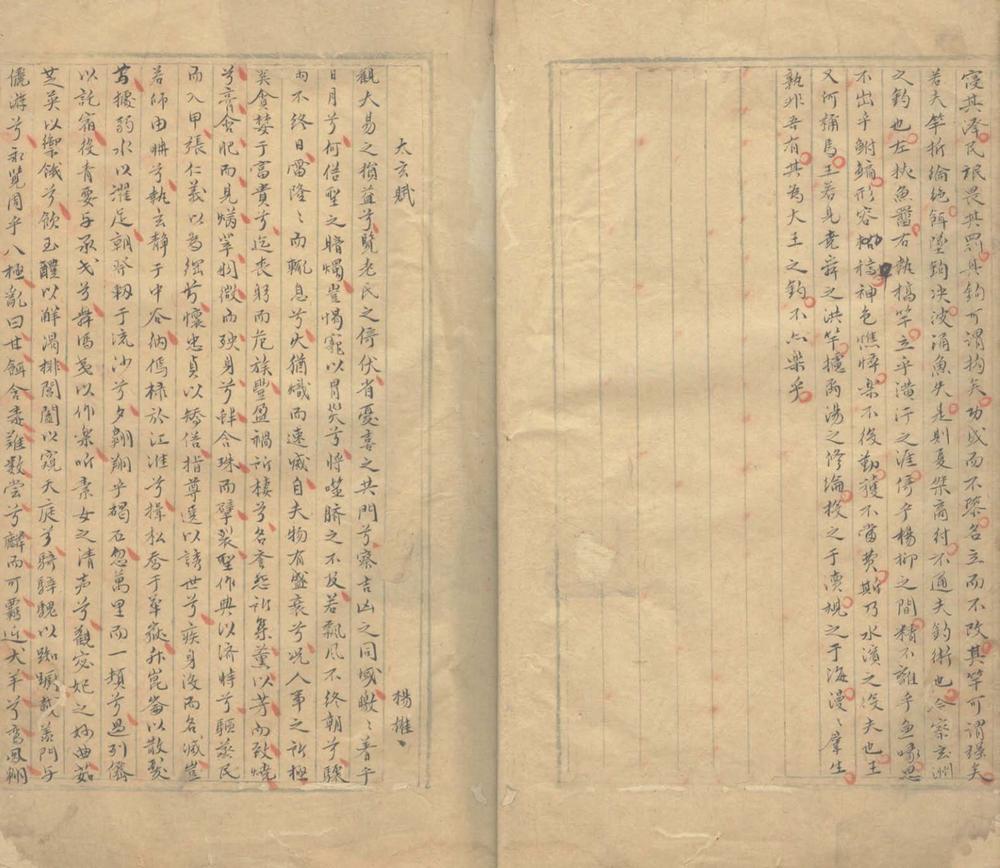 寑其澤民氓畏其罰其鈎可謂拘矣功成而不隳名立而不改其竿可謂強矣
若夫竿折綸絶餌墜鈎决波涌魚失是則夏桀商紂不通夫釣術也今察玄洲
之釣也左挾魚罶右執槁竿立乎潢汙之涯倚乎楊柳之間精不離乎魚喙思
不出乎鮒鯿形容枯槁神色憔悴樂不復勤獲不當費斯乃水濱之役夫也王
又何稱焉王若見堯舜之洪竿攄禹湯之修綸投之于瀆視之于海漫〻羣生
孰非吾有其為大王之釣不亦樂乎
太玄賦　楊雄
觀大易之損益兮覽老氏之倚伏省憂喜之共門兮察吉凶之同域皦〻著乎
日月兮何俗聖之暗燭豈愒寵以冒災兮將噬臍之不及若飄風不終朝兮驟
雨不終日雷隆〻而輒息兮火猶熾而速滅自夫物有盛衰兮况人事之所極
奚貪婪于富貴兮迄丧躬而危族豐盈禍所棲兮名譽怨所集薰以芳而致燒
兮膏含肥而見焫翠羽微而殃身兮蚌含珠而擘裂聖作典以濟時兮驅蒸民
而入甲張仁義以為綱兮懷忠貞以矯俗指尊選以誘世兮疾身没而名滅豈
若師由聃兮執玄静于中谷納傿祿於江淮兮揖松喬于華嶽升崑崙以散髮
兮據弱水以濯足朝發軔于流沙兮夕翱翔乎碣石忽萬里而一頓兮過列僊
以託宿役青要與承戈兮舞馮夷以作樂听素女之清声兮觀宓妃之妙曲茹
芝英以禦餓兮飲玉醴以解渴排閶闔以窺天庭兮騎騂騩以踟蹰載羨門与
儷游兮永覽周乎八極亂曰甘餌含毒難数嘗兮麟而可羈近犬羊兮鸞鳳翱